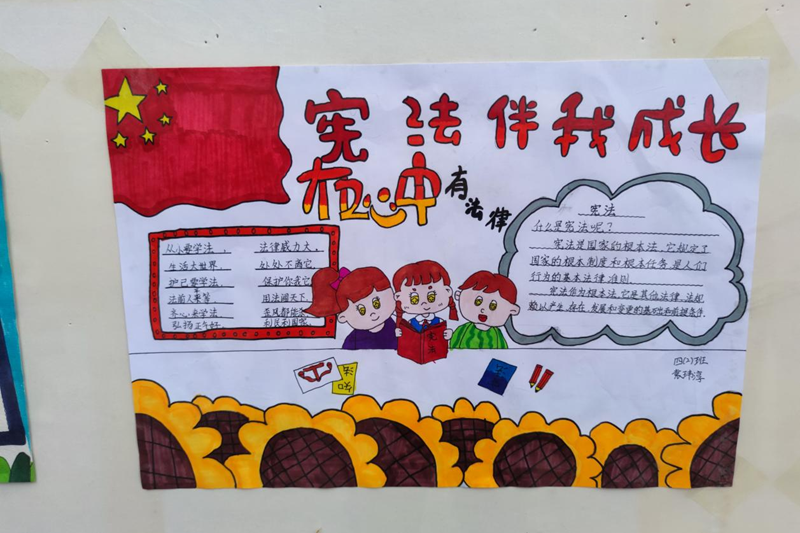 宪法伴我成长
有
法律
从小要学法，
法律威力大，
生活大世界，
处处不离它
护己要学法
保护你我它
法前人人等
用法闯天下
齐心来学法
弘扬正气好
利民利国家
宪法
什么是宪法呢？
宪法是国家的根本法，它规定了
国家的根本制度和根本任务，是人们
行为的基本法律准则.
宪法作为根本法，它是其他法律、法规
赖以产生、存在、发展和变更的基础和前提条件.
宪法
四(2)班